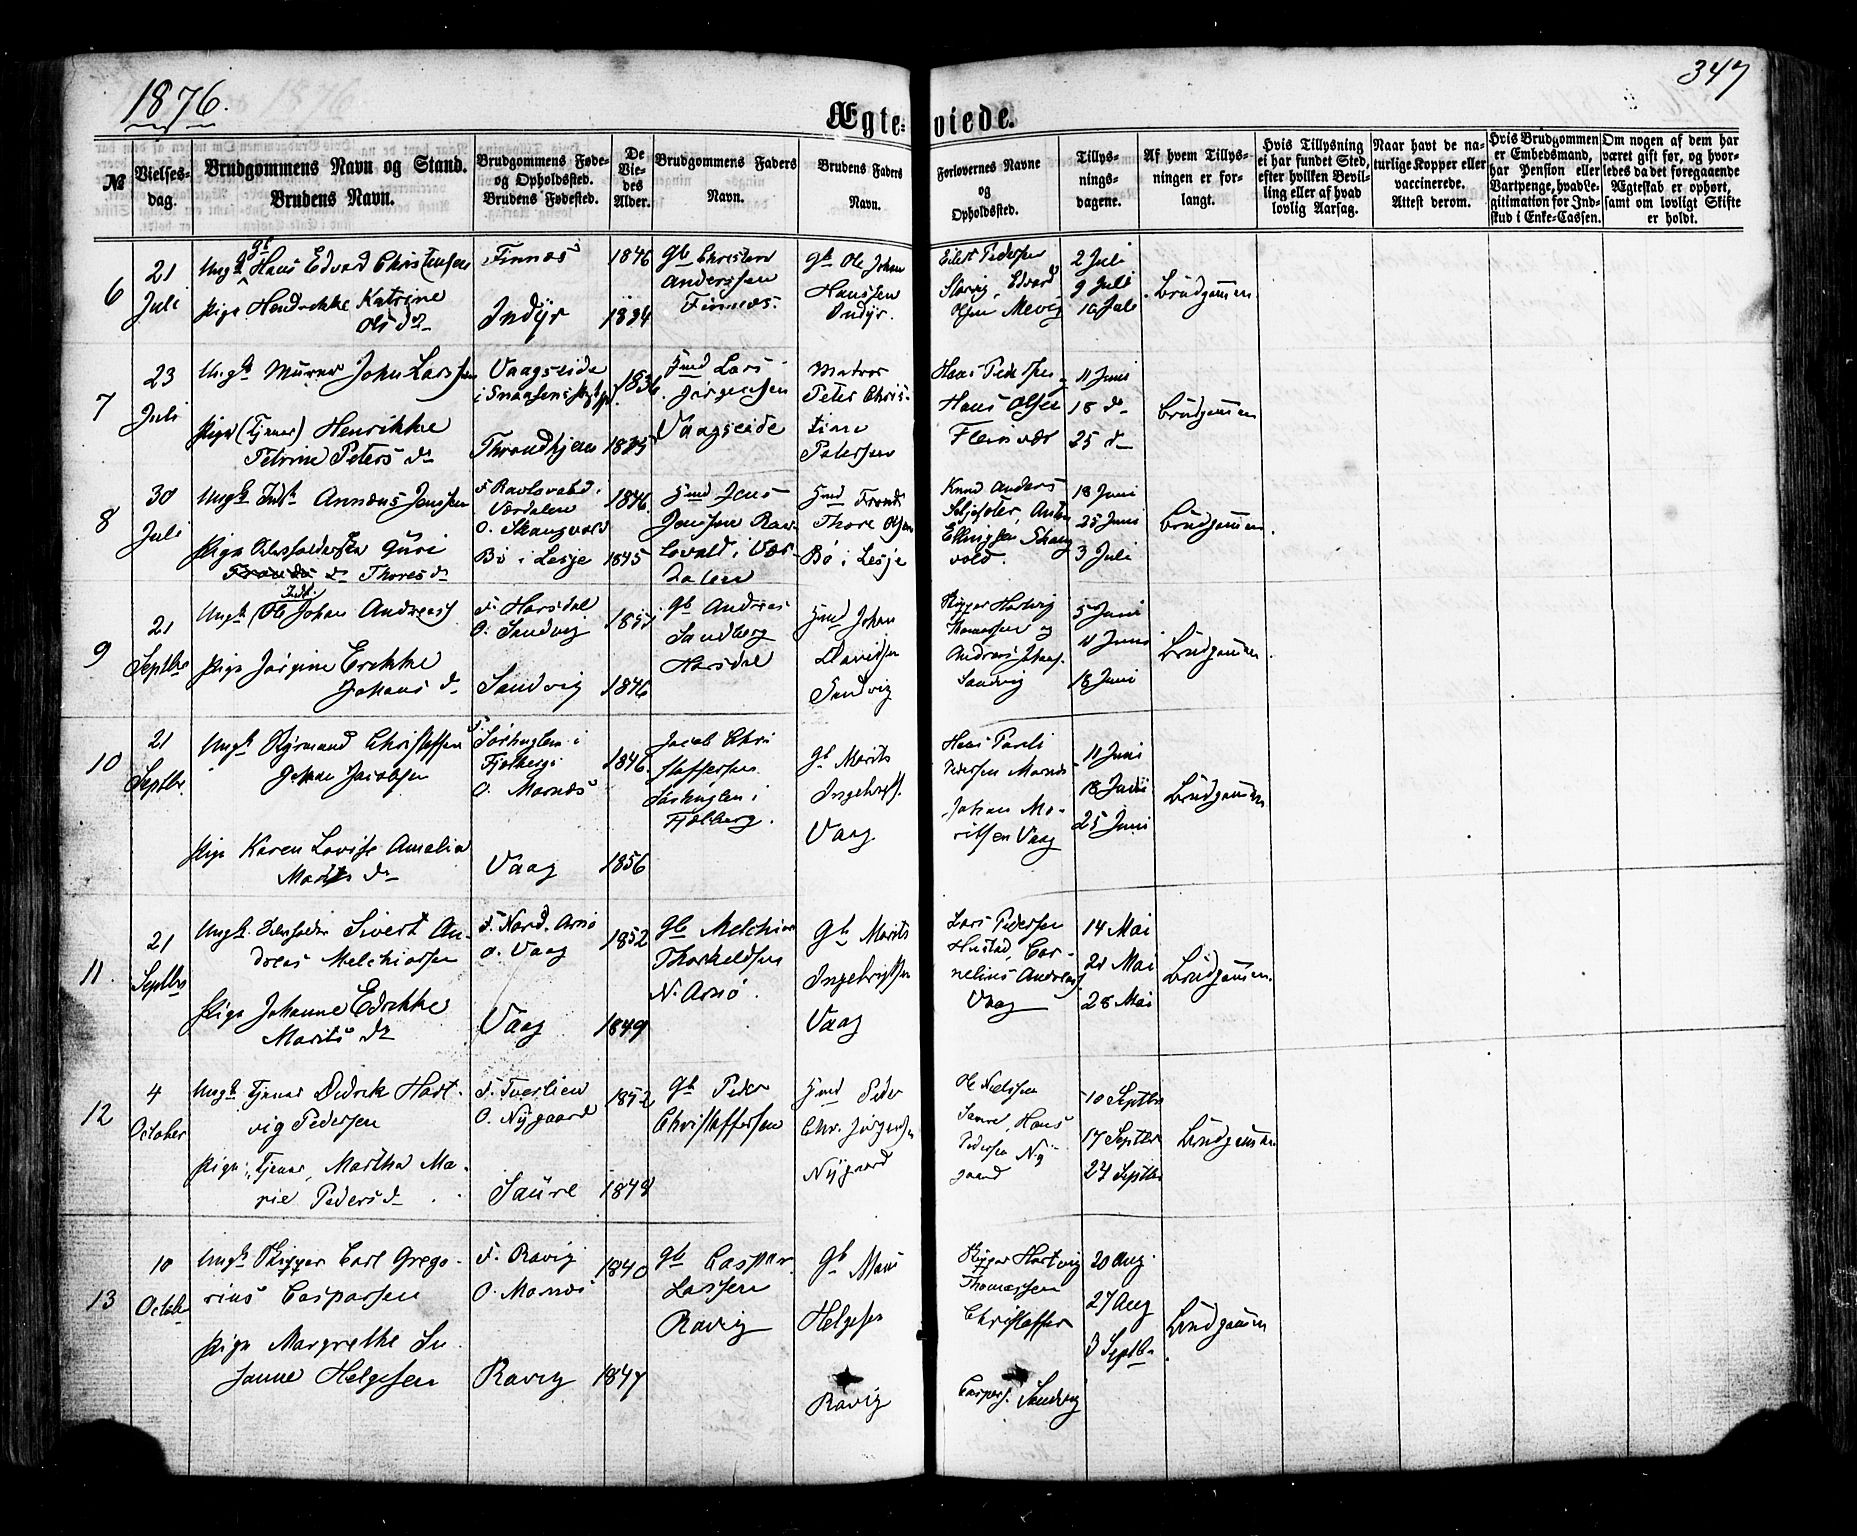 1876.
347
Ægte-viede.
№
Vielses-dag.
Brudgommens Navn og Stand.
Brudens Navn.
Brudgommens Føde- og Opholdssted.
Brudens Fødested.
De Vie-des Alder.
Brudgommens Faders Navn.
Brudens Faders Navn.
Forlovernes Navne og Opholdssted.
Tillys-nings-dagene.
Af hvem Tillys-ningen er for-langt.
Hvis Tillysning ei har fundet Sted, efter hvilken Bevil-ling eller af hvad lovlig Aarsag.
Naar havt de na-turlige Kopper eller vaccinerede. Attest derom.
Hvis Brudgommen er Embedsmand, har Pension eller Vartpenge, hvad Le-gitimation for Ind-skud i Enke-Cassen.
Om nogen af dem har været gift før, og hvor-ledes da det foregaaende Ægteskab er ophørt, samt om lovligt Skifte er holdt.
6
21 Juli
Ungk gb Hans Edvard Christensen
Pige Hendrikke Katrine
Ols dr
Finnæs
Indyr
1846
1834
gb Christen
Anderssen
Finnæs.
gb Ole Johan
Hanssen
Indyr.
Eilert Pedersen
Storvig, Edvard
Olsen Mevig
2 Juli
9 Juli
16 Juli
Brudgommen
7
23 Juli
Ungk Murer John Larssen
Pige (Tjener) Henrikke
Petrine Peters dr
Vaagseide
i Snaasens Prgjld
Throndhjem
1836
1835
Hmd Lars
Jørgensen
Vaagseide
Matros
Peter Chris-
tian
Petersen
Hans Pedersen
Hans Olsen
Fleinvær
11 Juni
18 dr
25 dr
Brudgommen
8
30 Juli
Ungk Indk Annæus Jenssen
Pige Guri
Thores dr
F. Ravlovald
Værdalen
O. Skaugvold
Bø i Lesje
1846
1845
Hmd Jens
Jenssen Rav-
lovald i Vær-
dalen
Hmd
Thore Olsen
Bø i Lesje
Knud Anders
Anton
Ellingsen Skaug-
vold.
18 Juni
25 Juni
3 Juli
Brudgommen
9
21 Septbr
Ungk Indk. Ole Johan Andreass
Pige Jørgine Erikke
Johans dr
F. Horsdal
O. Sandvig
Sandvig
1851
1846
gb Andreas
Sandberg
Horsdal
Hmd Johan
Davidsen
Sandvig
Skipper Hartvig
Thomassen og
Andreas Johans.
Sandvig
5 Juni
11 Juni
18 Juni
Brudgommen
10
21 Septbr
Ungk Styrmand Christoffer
Johan Jacobsen
Pige Karen Lovise Amalia
Morits dr
F. Sørhuglen i
Fjelberg
O. Mornæs
Vaag
1846
1856
Jacob Chri
stoffersen
Sørhuglen i
Fjelberg.
gb Morits
Ingebrigts.
Vaag
Hans Pavli
Pedersen Mornæs
Johan Mo-
ritsen Vaag
11 Juni
18 Juni
25 Juni
Brudgommen
11.
21 Septbr
Ungk. Sivert An-
dreas Melchiorsen
Pige Johanne Edrikke
Morits dr
F. Nord. Arnø
O. Vaag
Vaag
1852
1849
gb Melchior
Thorkeldsen
N. Arnø.
gb Morits
Ingebrigtsen
Vaag
Lars Pedersen
Hustad, Cor-
nelius Andreas
Vaag
14 Mai
21 Mai
28 Mai
Brudgommen.
12
4 October
Ungk Tjener Didrik Hart-
vig Pedersen
Pige, Tjener, Martha Ma-
rie Peders dr
F. Tverlien
O. Nygaard
Saure
1852
1848
gb Peder
Christoffersen
Hmd Peder
Chr. Jørgensen
Nygaard
Ole Nielssen
Saure, Hans
Pedersen Ny-
gaard
10 Septbr
17 Septbr
24 Septbr
Brudgommen
13
10 Octobr
Ungk Skipper Carl Grego-
rius Casparsen
Pige Margrethe Su-
sanne Helgesen
F. Ravig
O. Mornæs
Ravig
1840
1847
gb Caspar
Larsen
Ravig
gb Mons
Helgesen
Ravig
Skipper Hartvig
Thomassen
Christoffer
Caspers. Sandvig
20 Aug.
27 Aug
3 Septbr.
Brudgommen